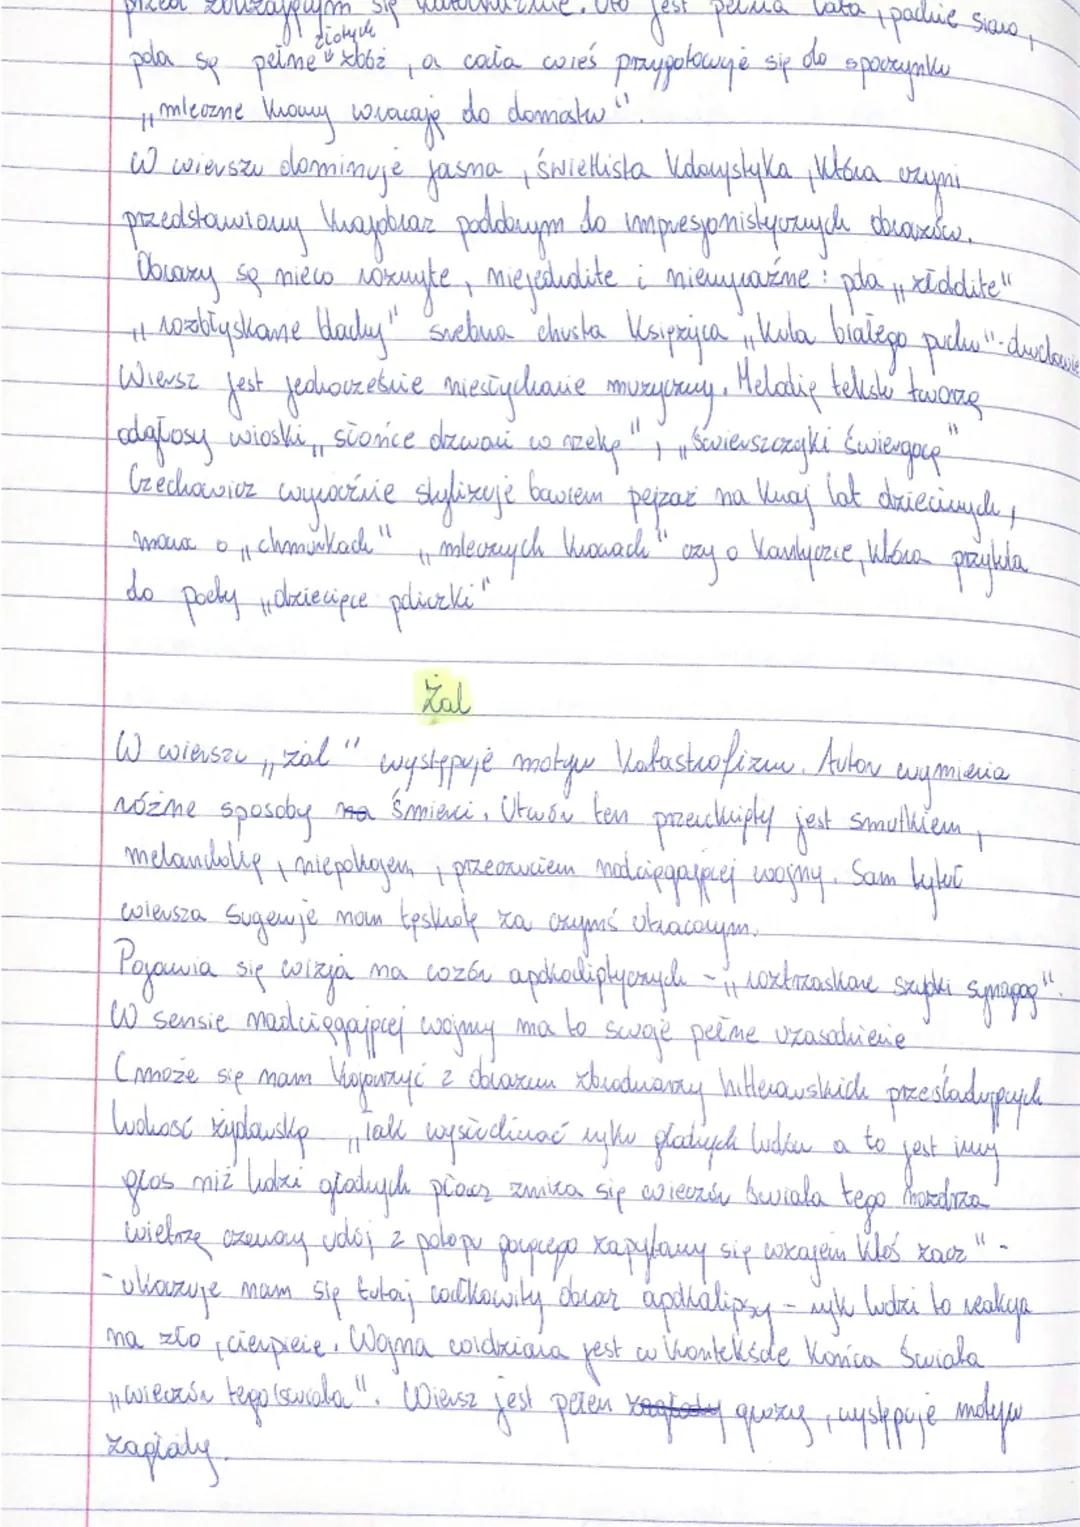 przed zbliżającym się. Oto jest pełnia lata, pachnie siano,
złotych
pola są pełne zbóż, a cała wieś przygotowuje się do spoczynku
"mleczne krowy wracają do domostw".
W wierszu dominuje jasna, świetlista kolorystyka, która czyni
przedstawiony krajobraz podobnym do impresjonistycznych obrazów.
Obrazy są nieco rozmyte, niejednolite i niewyraźne: pola "złociste"
"rozbłyskane blachy" srebrna chusta księżyca "kula białego puchu"-
Wiersz jest jednocześnie niesłychanie muzyczny. Melodię tekstu tworzą
odgłosy wioski "słońce dzwoni w rzekę", "świerszczyki świergocą"
Czechowicz wyraźnie stylizuje bowiem pejzaż na kraj lat dziecinnych,
mowa o "chmurkach" "mlecznych krowach" czy o kantyczce, która przytula
do poety "dziecięce policzki"
Żal
W wierszu "żal" występuje motyw katastrofizmu. Autor wymienia
różne sposoby na śmierci. Utwór ten przeniknięty jest smutkiem,
melancholią, niepokojem, przeczuciem nadciągającej wojny. Sam tytuł
wiersza sugeruje nam tęsknotę za czymś utraconym.
Pojawia się wizja na wzór apokaliptycznych - "roztrzaskane szybki synagog".
W sensie nadciągającej wojny ma to swoje pełne uzasadnienie
(może się nam kojarzyć z obrazem zbrodniarzy hitlerowskich prześladujących
ludność żydowską "jak wyśledzinać ryku głodnych ludów a to jest inny
głos niż ludzi głodnych płacz zniża się wieczór świata tego nozdrza
wietrzą czerwony udój z potopu gorącego zapytamy się wzajem ktoś zacz" -
- ukazuje nam się tutaj całkowity obraz apokalipsy - ryk ludzi to reakcja
na zło, cierpienie. Wojna widziana jest w kontekście końca świata
"wieczór tego świata". Wiersz jest pełen zagłady grozy, występuje motyw
zagłady.